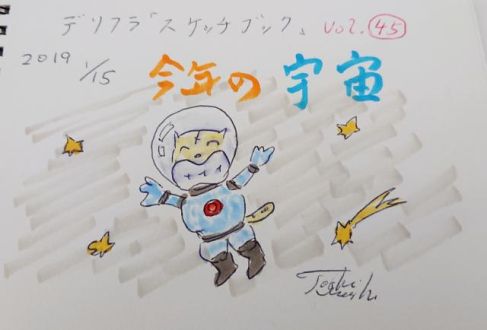 デリフラ「スケッチブック」 Vol. 45
2019 1/15
今年の 宇宙